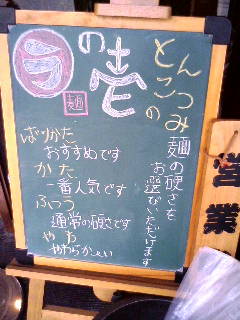 とんこつの
つみ
ラの壱
麺
麺の硬さを
お選びいただけます
ばりかた
おすすめです
かた
一番人気です
ふつう
通常の硬さです
やわ
やわらかーい
営業